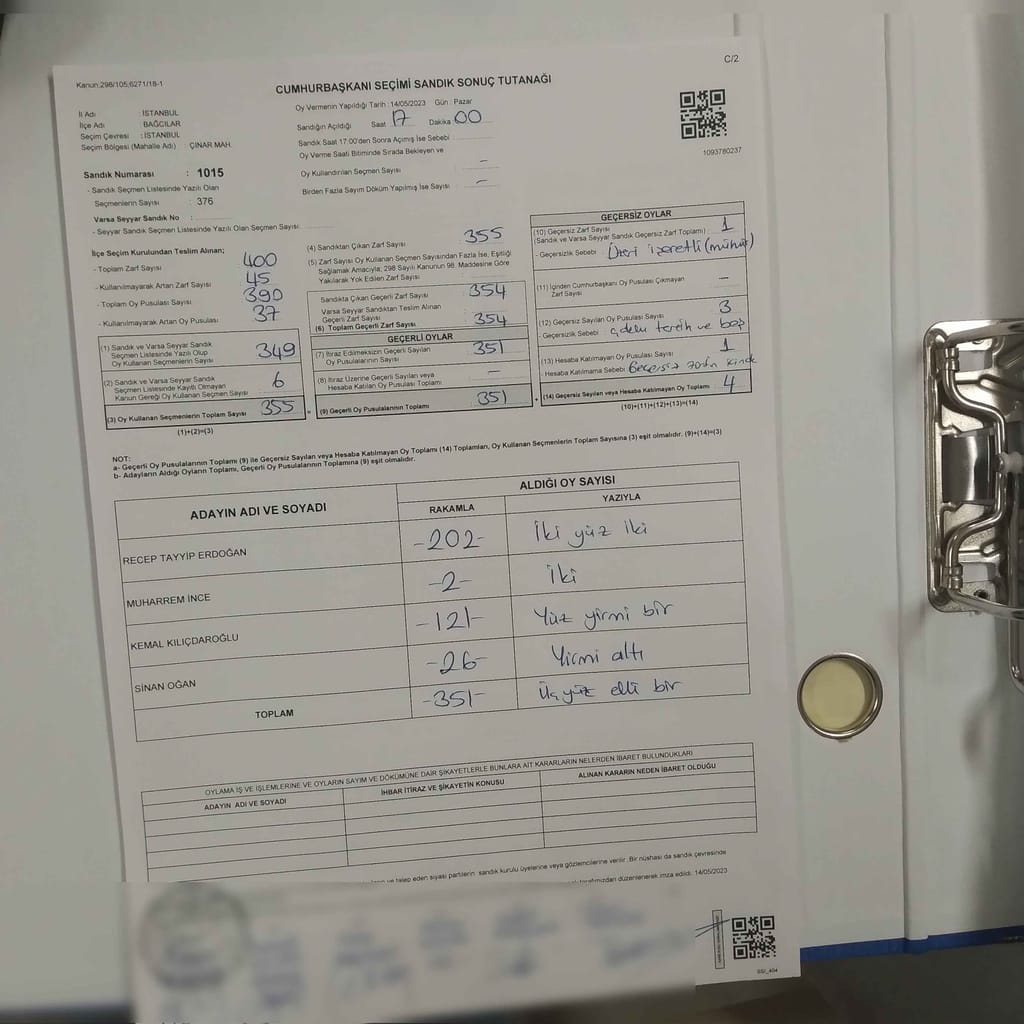 Kanun:298/105,6271/18-1
C/2
CUMHURBAŞKANI SEÇİMİ SANDIK SONUÇ TUTANAĞI
İl Adı : İSTANBUL
İlçe Adı : BAĞCILAR
Seçim Çevresi : İSTANBUL
Seçim Bölgesi (Mahalle Adı) : ÇINAR MAH.
Oy Vermenin Yapıldığı Tarih : 14/05/2023 Gün : Pazar
Sandığın Açıldığı Saat 17 Dakika 00
Sandık Saat 17:00'den Sonra Açımış İse Sebebi
Oy Verme Saati Bitiminde Sırada Bekleyen ve
Oy Kullandırılan Seçmen Sayısı : -
Birden Fazla Sayım Döküm Yapılmış İse Sayısı : -
1093780237
Sandık Numarası : 1015
- Sandık Seçmen Listesinde Yazılı Olan
Seçmenlerin Sayısı : 376
Varsa Seyyar Sandık No :
- Seyyar Sandık Seçmen Listesinde Yazılı Olan Seçmen Sayısı:
İlçe Seçim Kurulundan Teslim Alınan;
- Toplam Zarf Sayısı 400
- Kullanılmayarak Artan Zarf Sayısı 45
- Toplam Oy Pusulası Sayısı 390
- Kullanılmayarak Artan Oy Pusulası 37
(1) Sandık ve Varsa Seyyar Sandık
Seçmen Listesinde Yazılı Olup
Oy Kullanan Seçmenlerin Sayısı 349
(2) Sandık ve Varsa Seyyar Sandık
Seçmen Listesinde Kayıtlı Olmayan
Kanun Gereği Oy Kullanan Seçmen Sayısı 6
(3) Oy Kullanan Seçmenlerin Toplam Sayısı 355
(1)+(2)=(3)
(4) Sandıktan Çıkan Zarf Sayısı 355
(5) Zarf Sayısı Oy Kullanan Seçmen Sayısından Fazla İse, Eşitliği
Sağlamak Amacıyla, 298 Sayılı Kanunun 98. Maddesine Göre
Yakılarak Yok Edilen Zarf Sayısı :
Sandıkta Çıkan Geçerli Zarf Sayısı 354
Varsa Seyyar Sandıktan Teslim Alınan
Geçerli Zarf Sayısı
(6) Toplam Geçerli Zarf Sayısı 354
GEÇERLİ OYLAR
(7) İtiraz Edilmeksizin Geçerli Sayılan
Oy Pusulalarının Sayısı 351
(8) İtiraz Üzerine Geçerli Sayılan veya
Hesaba Katılan Oy Pusulası Toplamı -
= (9) Geçerli Oy Pusulalarının Toplamı 351
GEÇERSİZ OYLAR
(10) Geçersiz Zarf Sayısı 1
(Sandık ve Varsa Seyyar Sandık Geçersiz Zarf Toplamı) :
- Geçersizlik Sebebi : Üzeri işaretli (mühür)
(11) İçinden Cumhurbaşkanı Oy Pusulası Çıkmayan
Zarf Sayısı -
(12) Geçersiz Sayılan Oy Pusulası Sayısı 3
- Geçersizlik Sebebi : tercih ve boş
(13) Hesaba Katılmayan Oy Pusulası Sayısı 1
- Hesaba Katılmama Sebebi : Geçersiz zarfın içinde
+ (14) Geçersiz Sayılan veya Hesaba Katılmayan Oy Toplamı 4
(10)+(11)+(12)+(13)=(14)
NOT:
a- Geçerli Oy Pusulalarının Toplamı (9) ile Geçersiz Sayılan veya Hesaba Katılmayan Oy Toplamı (14) Toplamları, Oy Kullanan Seçmenlerin Toplam Sayısına (3) eşit olmalıdır. (9)+(14)=(3)
b- Adayların Aldığı Oyların Toplamı, Geçerli Oy Pusulalarının Toplamına (9) eşit olmalıdır.
ADAYIN ADI VE SOYADI
ALDIĞI OY SAYISI
RAKAMLA YAZIYLA
RECEP TAYYİP ERDOĞAN -202- İki yüz iki
MUHARREM İNCE -2- İki
KEMAL KILIÇDAROĞLU -121- Yüz yirmi bir
SİNAN OĞAN -26- Yirmi altı
TOPLAM -351- Üç yüz elli bir
OYLAMA İŞ VE İŞLEMLERİNE VE OYLARIN SAYIM VE DÖKÜMÜNE DAİR ŞİKAYETLERLE BUNLARA AİT KARARLARIN NELERDEN İBARET BULUNDUKLARI
ADAYIN ADI VE SOYADI İHBAR İTİRAZ VE ŞİKAYETİN KONUSU ALINAN KARARIN NEDEN İBARET OLDUĞU
ve talep eden siyasi partilerin sandık kurulu üyelerine veya gözlemcilerine verilir. Bir nüshası da sandık çevresinde
tarafımızdan düzenlenerek imza edildi. 14/05/2023